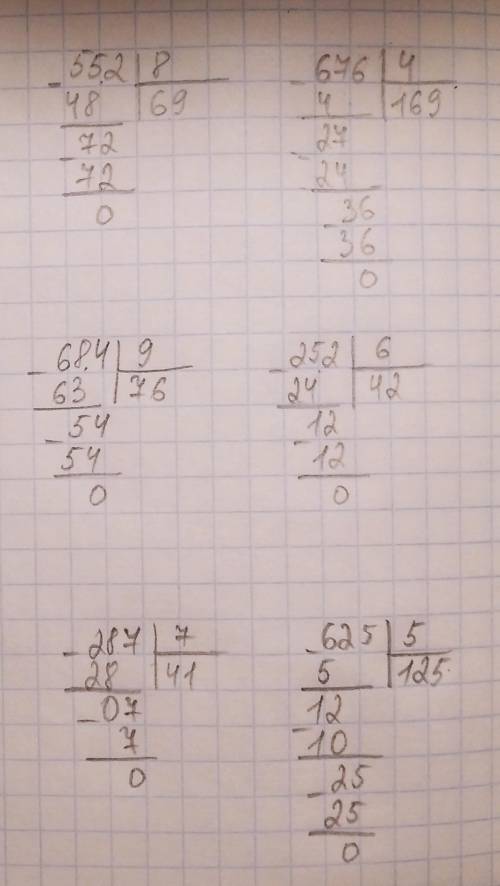 - 55.2 | 8
48 | 69
- 72
72
0
- 676 | 4
4 | 169
- 27
24
- 36
36
0
- 68.4 | 9
63 | 76
- 54
54
0
- 25.2 | 6
24 | 42
- 12
12
0
- 287 | 7
28 | 41
- 07
7
0
- 625 | 5
5 | 125
- 12
10
- 25
25
0